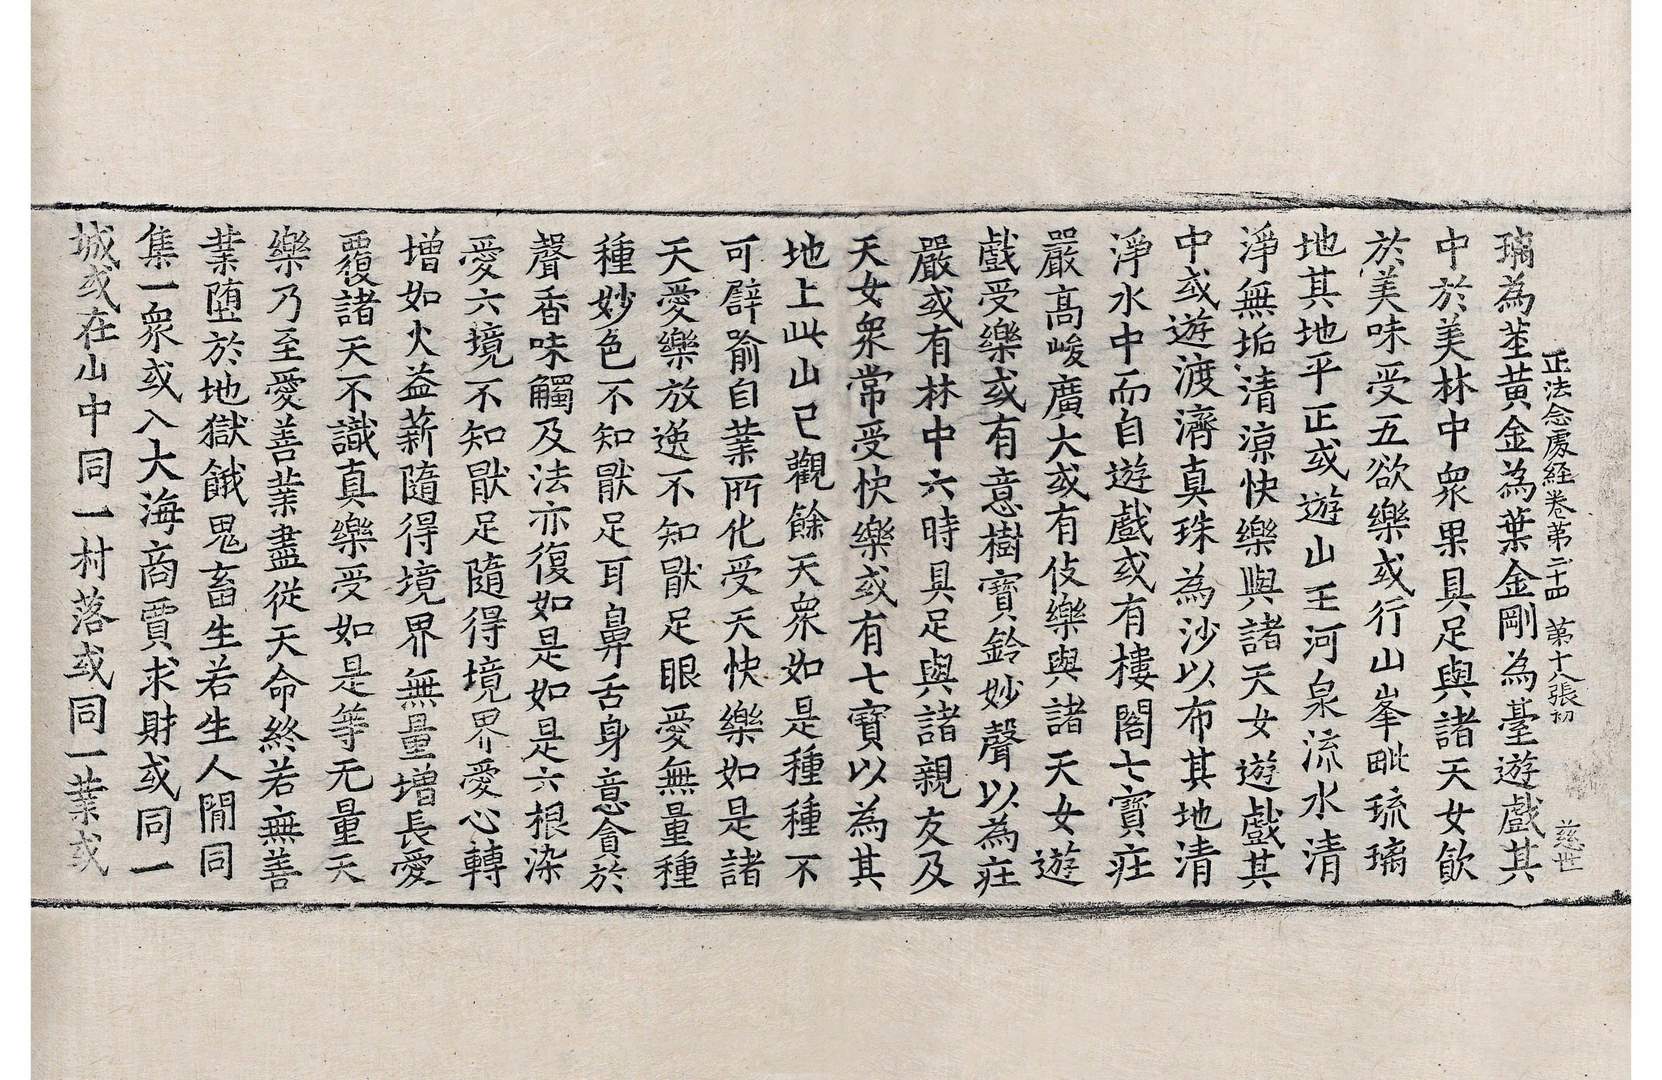 正法念處經卷第二十四 第十八張 初 慈世
璃為莖黃金為葉金剛為臺遊戲其
中於美林中眾果具足與諸天女飲
於美味受五欲樂或行山峯毗琉璃
地其地平正或遊山王河泉流水清
淨無垢清涼快樂與諸天女遊戲其
中或遊渡濟真珠為沙以布其地清
淨水中而自遊戲或有樓閣七寶莊
嚴高峻廣大或有伎樂與諸天女遊
戲受樂或有意樹寶鈴妙聲以為莊
嚴或有林中六時具足與諸親友及
天女眾常受快樂或有七寶以為其
地上此山已觀餘天眾如是種種不
可譬喻自業所化受天快樂如是諸
天愛樂放逸不知猒足眼愛無量種
種妙色不知猒足耳鼻舌身意會於
聲香味觸及法亦復如是如是六根染
愛六境不知猒足隨得境界愛心轉
增如火益薪隨得境界無量增長愛
覆諸天不識真樂受如是等无量天
樂乃至愛善業盡從天命終若無善
業墮於地獄餓鬼畜生若生人間同
集一眾或入大海商賈求財或同一
城或在山中同一村落或同一業或